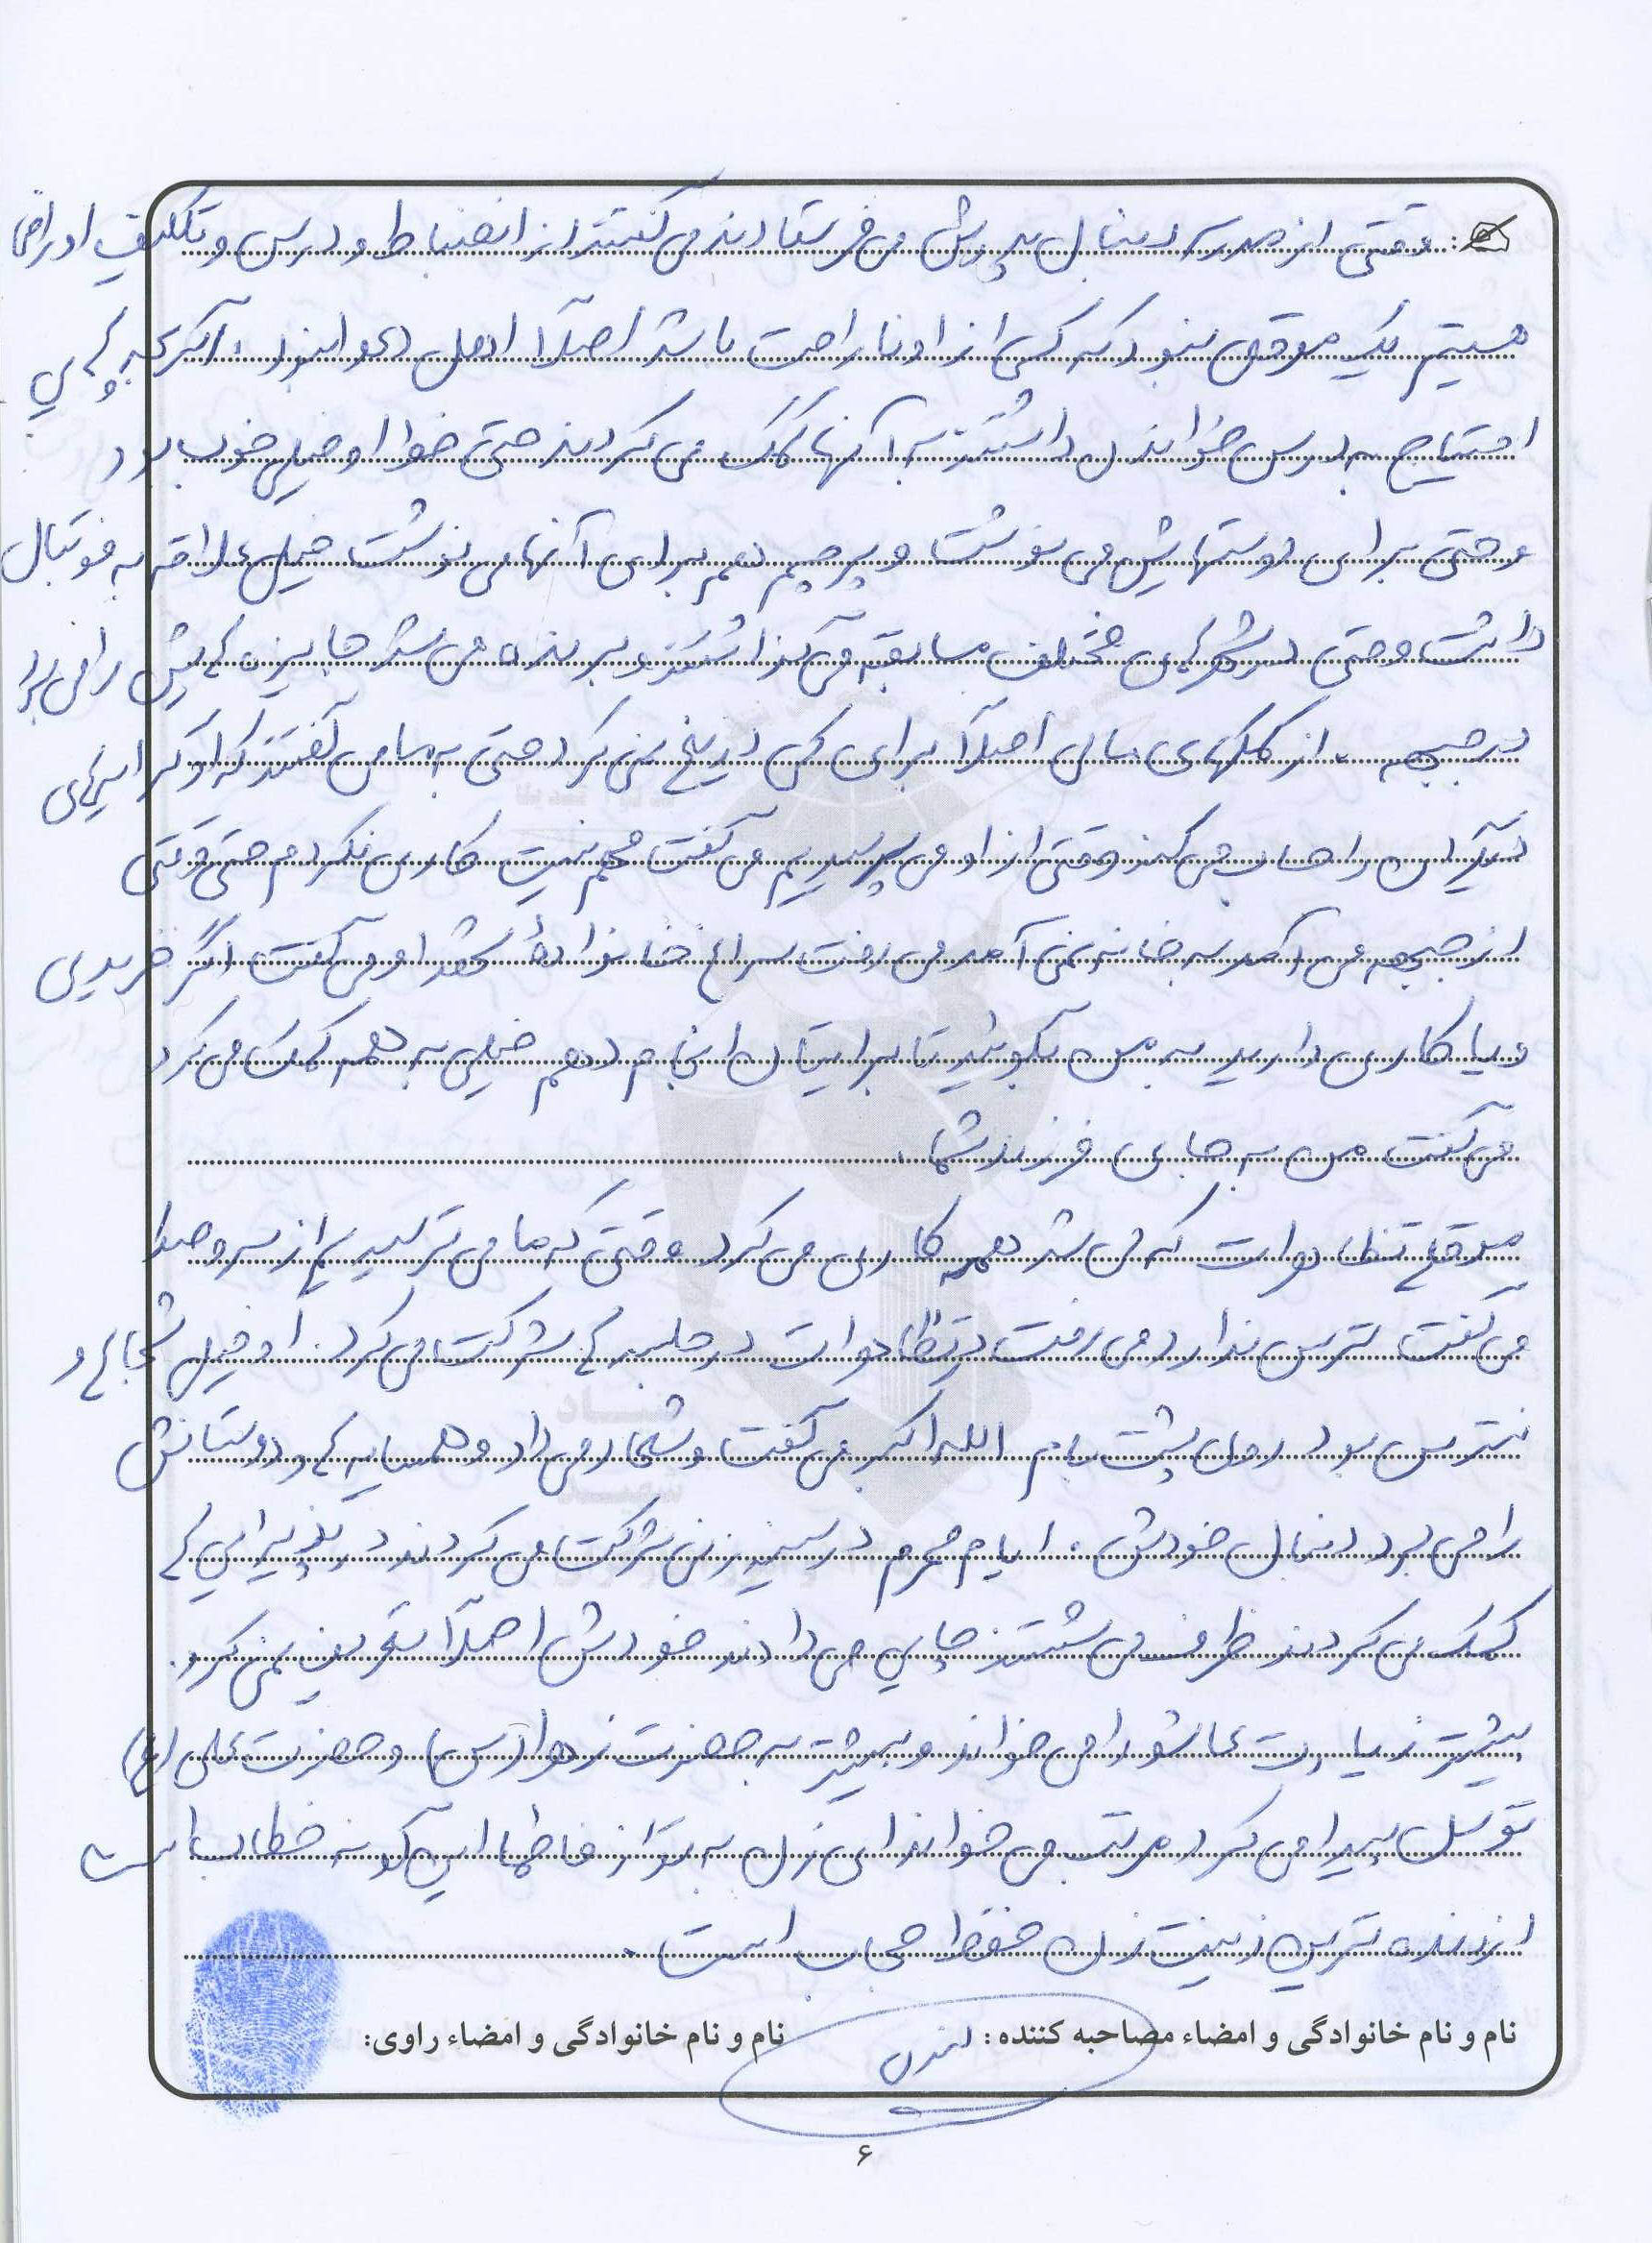 وقتی از مدرسه دنبال پدرش می فرستادند می گفتند از انضباط و درس و تکلیف او راضی
هستیم یک موقعی نبود که کسی از او ناراحت باشد اصلاً اهل دعوا نبود. اگر بچه هایی
احتیاج به درس خواندن داشتند به آنها کمک می کردند حتی خط او خیلی خوب بود
و حتی برای دوستهایش می نوشت و پرچم هم برای آنها می نوشت خیلی علاقه به فوتبال
داشت و حتی در شهرهای مختلف مسابقه می گذاشتند و برنده می شد جایزه هایش را می برد
در جبهه. از کمکهای مالی اصلاً برای کسی دریغ نمی کرد حتی به ما می گفتند که او کرایه های
دیگران را حساب می کند وقتی از او می پرسیدیم می گفت مهم نیست کاری نکردم حتی وقتی
از جبهه می آمد به خانه نمی آمد می رفت سراغ خانواده شهدا و می گفت اگر خریدی
و یا کاری دارید به من بگوئید تا برایتان انجام دهم خیلی به همه کمک می کرد
می گفت من به جای فرزند شما.
موقع تظاهرات که می شد همه کاری می کرد وقتی که ما می ترسیدیم از سر و صدا
می گفت ترس ندارد می رفت در تظاهرات در جلسه ها شرکت می کرد. او خیلی شجاع و
نترس بود روی پشت بام الله اکبر می گفت و شعار می داد و همسایه ها و دوستانش
را می برد دنبال خودش. ایام محرم در سینه زنی شرکت می کردند در پذیرایی ها
کمک می کردند ظرف می شستند چایی می دادند خودش اصلاً تعریف نمی کرد.
بیشتر زیارت عاشورا می خواند و بیشتر به حضرت زهرا (س) و حضرت علی (ع)
توسل پیدا می کرد مرتب می خواند ای زن به تو از فاطمه این گونه خطاب است
ارزنده ترین زینت زن حفظ حجاب است.
نام و نام خانوادگی و امضاء مصاحبه کننده: نام و نام خانوادگی و امضاء راوی:
۶